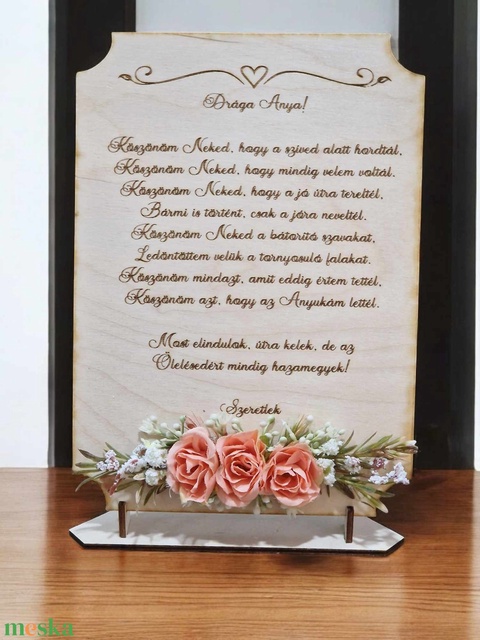 Drága Anya!
Köszönöm Neked, hogy a szíved alatt hordtál,
Köszönöm Neked, hogy mindig velem voltál.
Köszönöm Neked, hogy a jó útra tereltél,
Bármi is történt, csak a jóra neveltél.
Köszönöm Neked a bátorító szavakat,
Ledöntöttem velük a tornyosuló falakat.
Köszönöm mindazt, amit eddig értem tettél,
Köszönöm azt, hogy az Anyukám lettél.
Most elindulok, útra kelek, de az
Ölelésedért mindig hazamegyek!
Szeretlek
meska